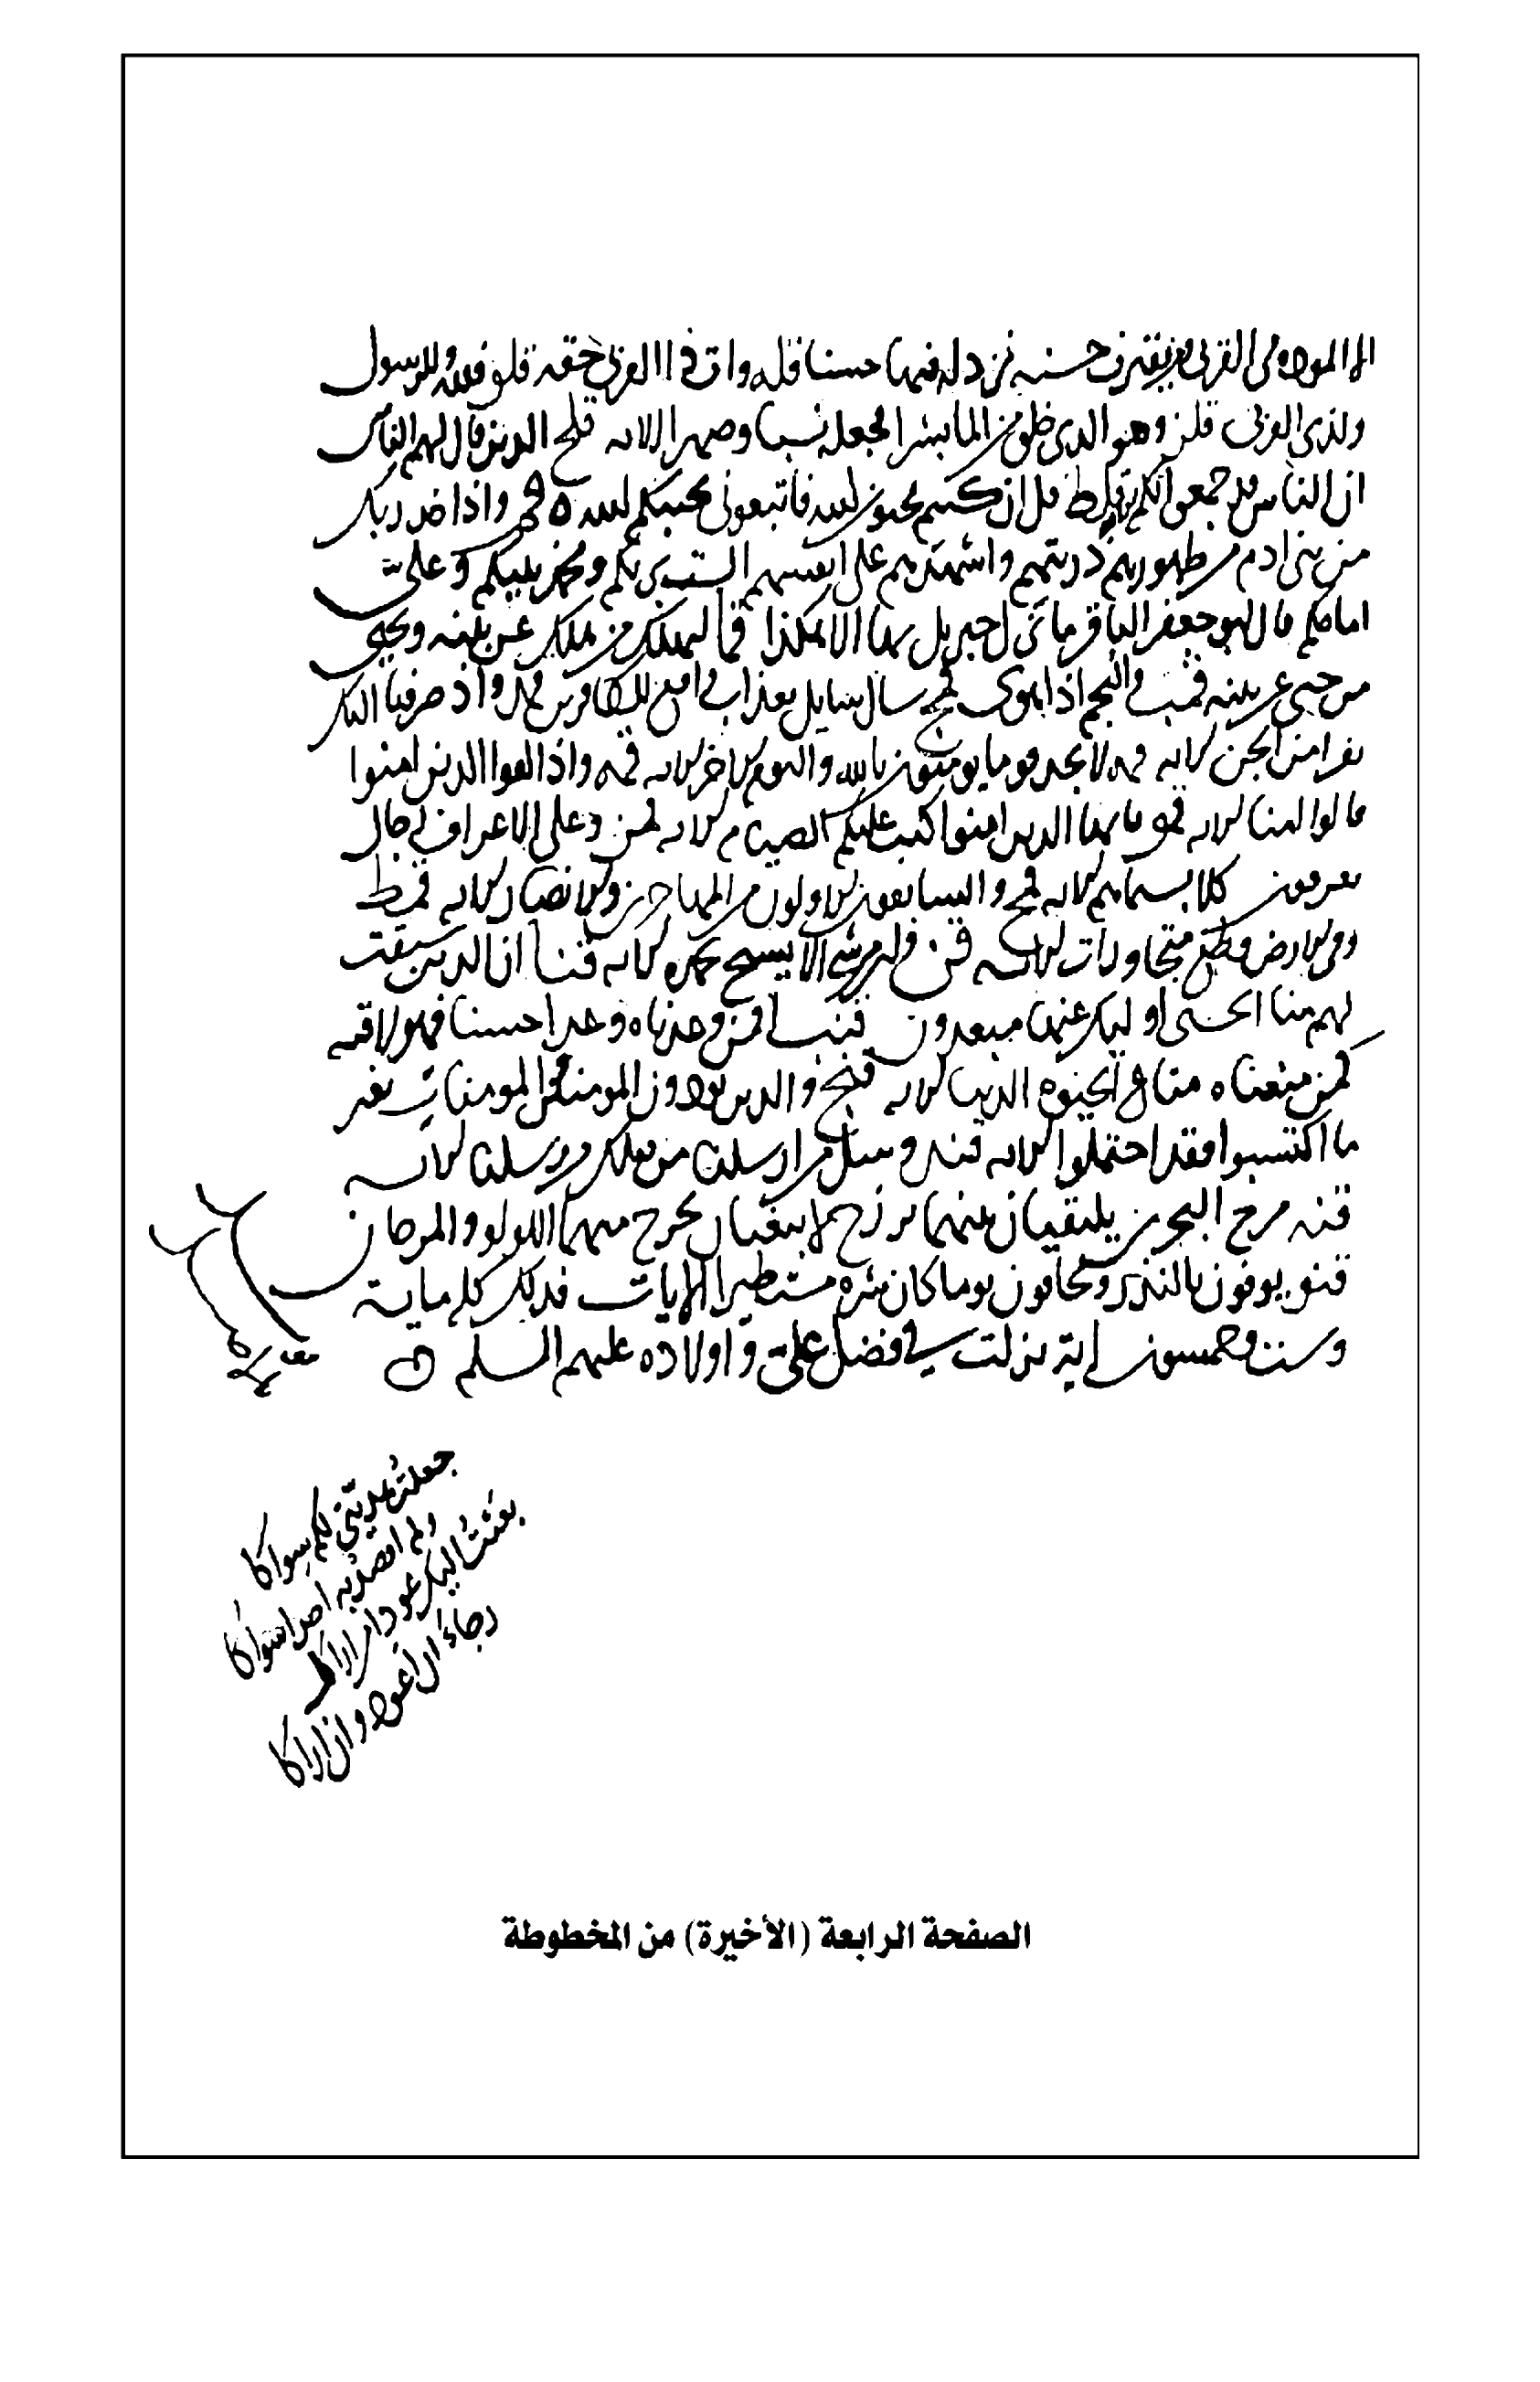 الا المودة في القربى ومن يقترف حسنة نزد له فيها حسنا قله وات ذا القربى حقه قلو فلله وللرسول
ولذي القربى قلز وهو الذي خلق من الما بشرا فجعله نسبا وصهرا الايه قلح الذين قال لهم الناس
ان الناس قد جمعوا لكم قلط قل ان كنتم تحبون الله فاتبعوني يحببكم الله واذ اخذ ربك
من بني ادم من ظهورهم ذريتهم واشهدهم على انفسهم الست بربكم ومحمد نبيكم وعلي
امامكم قال ابو جعفر الباقر ما نزل جبريل بها الا هكذا قما ليهلك من هلك عن بينه ويحيى
من حيي عن بينه قمب والنجم اذا هوى قمج سال سايل بعذاب واقع للكافرين قمد واذ صرفنا اليك
نفرا من الجن الايه قمه لا تجد قوما يومنون بالله واليوم الاخر الايه قمو واذا لقوا الذين امنوا
قالوا امنا الايه قمز يا ايها الذين امنوا كتب عليكم الصيام الايه قمح وعلى الاعراف رجال
يعرفون كلا بسيماهم الايه قمح والسابقون الاولون من المهاجرين والانصار الايه قمط
وفي الارض قطع متجاورات الايه قن وان من شي الا يسبح بحمده الايه قنا ان الذين سبقت
لهم منا الحسنى اوليك عنها مبعدون قنب افمن وعدناه وعدا حسنا فهو لاقيه
كمن متعناه متاع الحيوه الدنيا الايه قنج والذين يوذون المومنين والمومنات بغير
ما اكتسبوا فقد احتملوا الايه قند وسئل من ارسلنا من قبلك من رسلنا الايه
قنه مرج البحرين يلتقيان بينهما برزخ لا يبغيان يخرج منهما اللولو والمرجان
قنو يوفون بالنذر ويخافون يوما كان شره مستطيرا الايات فذلك كله ماية
وست وخمسون اية نزلت في فضل علي واولاده عليهم السلم
جعلت هديتي لكم سواكا
ولم اقصد به احدا سواكا
بعثت اليك عودا من اراك
رجاء ان اعود وان اراكا
الصفحة الرابعة (الأخيرة) من المخطوطة